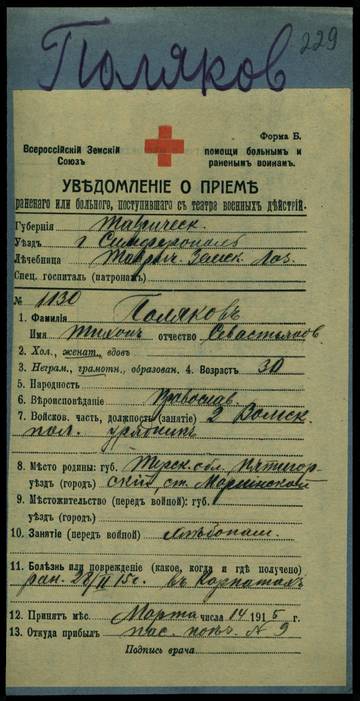 229
Поляков
Форма Б.
Всероссійскій Земскій Союзъ
помощи больнымъ и раненымъ воинамъ.
УВѢДОМЛЕНІЕ О ПРІЕМѢ
раненаго или больного, поступившаго съ театра военныхъ дѣйствій.
Губернія Таврическ.
Уѣздъ г Симферополь
Лѣчебница Таврич. Земск. Лаз.
Спец. госпиталь (патронатъ)
№ 1130
1. Фамилія Поляковъ
Имя Тихонъ отчество Севастьянов.
2. Хол., женат., вдовъ
3. Неграм., грамотн., образован. 4. Возрастъ 30
5. Народность
6. Вѣроисповѣданіе Православ.
7. Войсков. часть, должность (занятіе) 2 Волжск.
пол. урядникъ
8. Мѣсто родины: губ. Терск. обл. Пятигор-
уѣздъ (городъ) скій, ст. Марьинской
9. Мѣстожительство (передъ войной): губ.
уѣздъ (городъ)
10. Занятіе (передъ войной) хлѣбопаш.
11. Болѣзнь или поврежденіе (какое, когда и гдѣ получено)
ран. 28/II 15 г. въ Карпатахъ
12. Принятъ мѣс. Марта числа 14 1915 г.
13. Откуда прибылъ № 9
Подпись врача